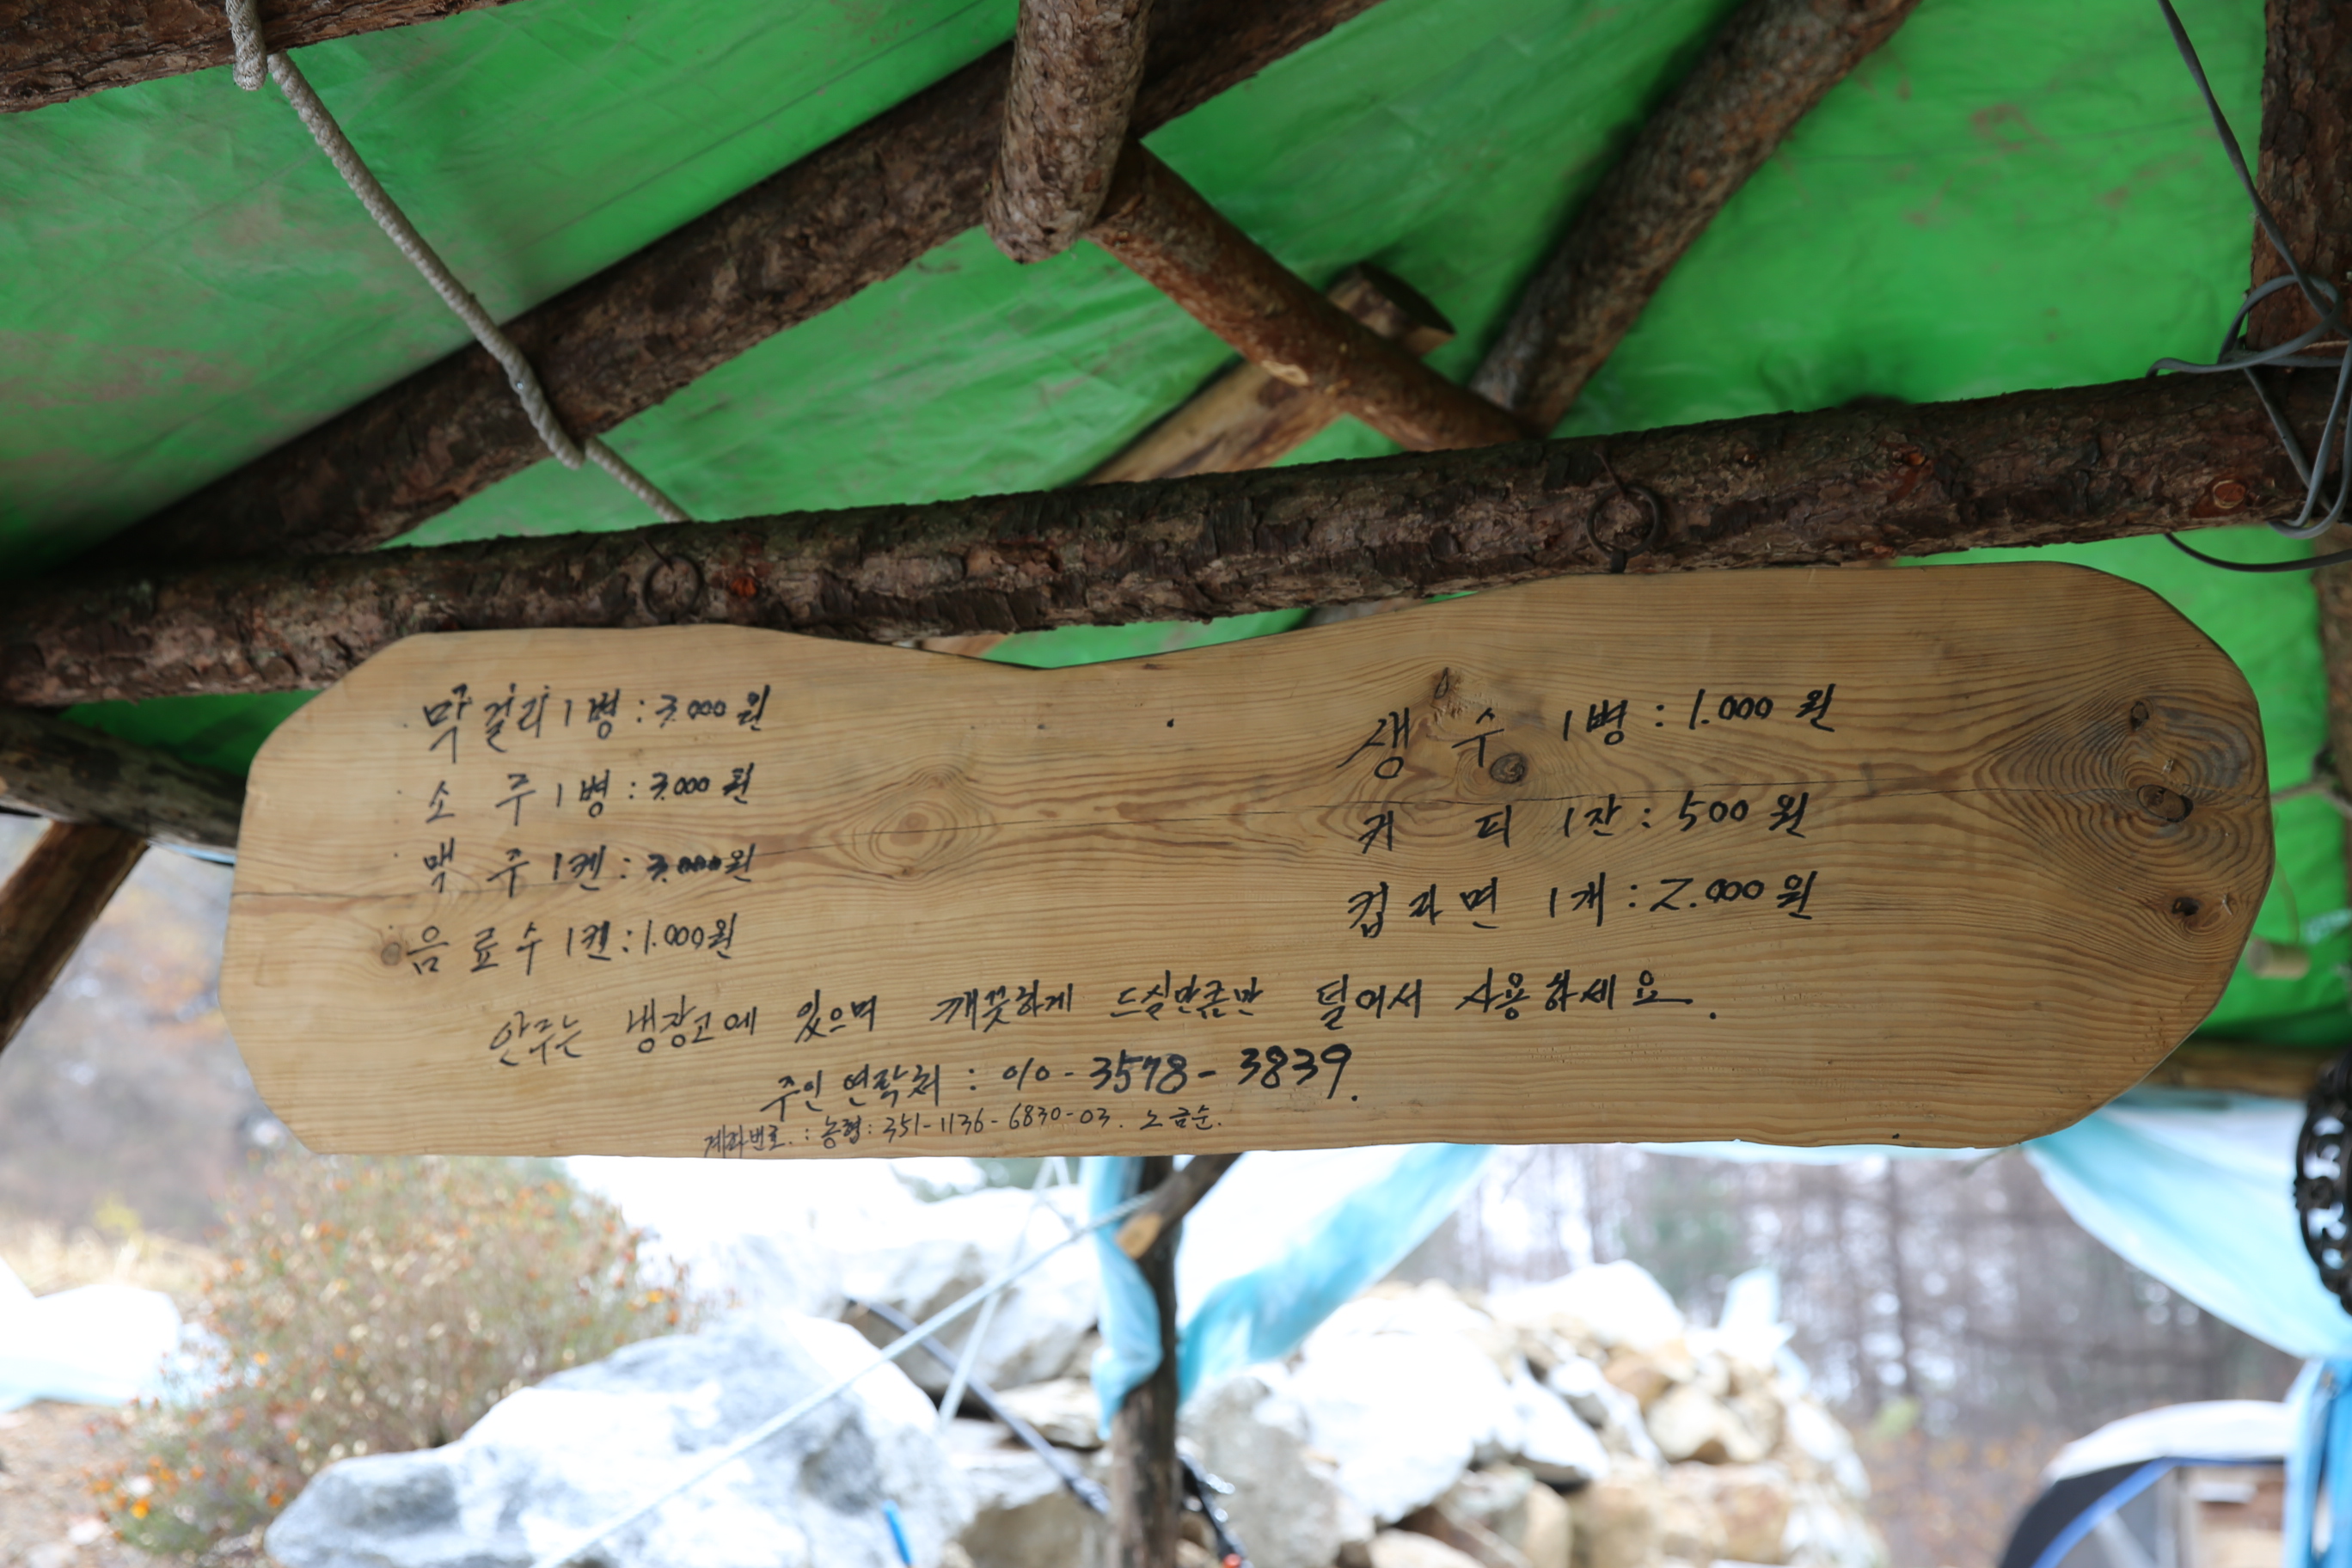 막걸리 1병 : 3.000원
소 주 1병 : 3.000원
맥 주 1켄 : 3.000원
음 료 수 1켄 : 1.000원
생 수 1병 : 1.000원
커 피 1잔 : 500원
컵 라 면 1개 : 2.000원
안주는 냉장고에 있으며 깨끗하게 드실만큼만 덜어서 사용하세요.
주인 연락처 : 010-3578-3839.
계좌번호. : 농협 : 351-1136-6830-03. 노금순.